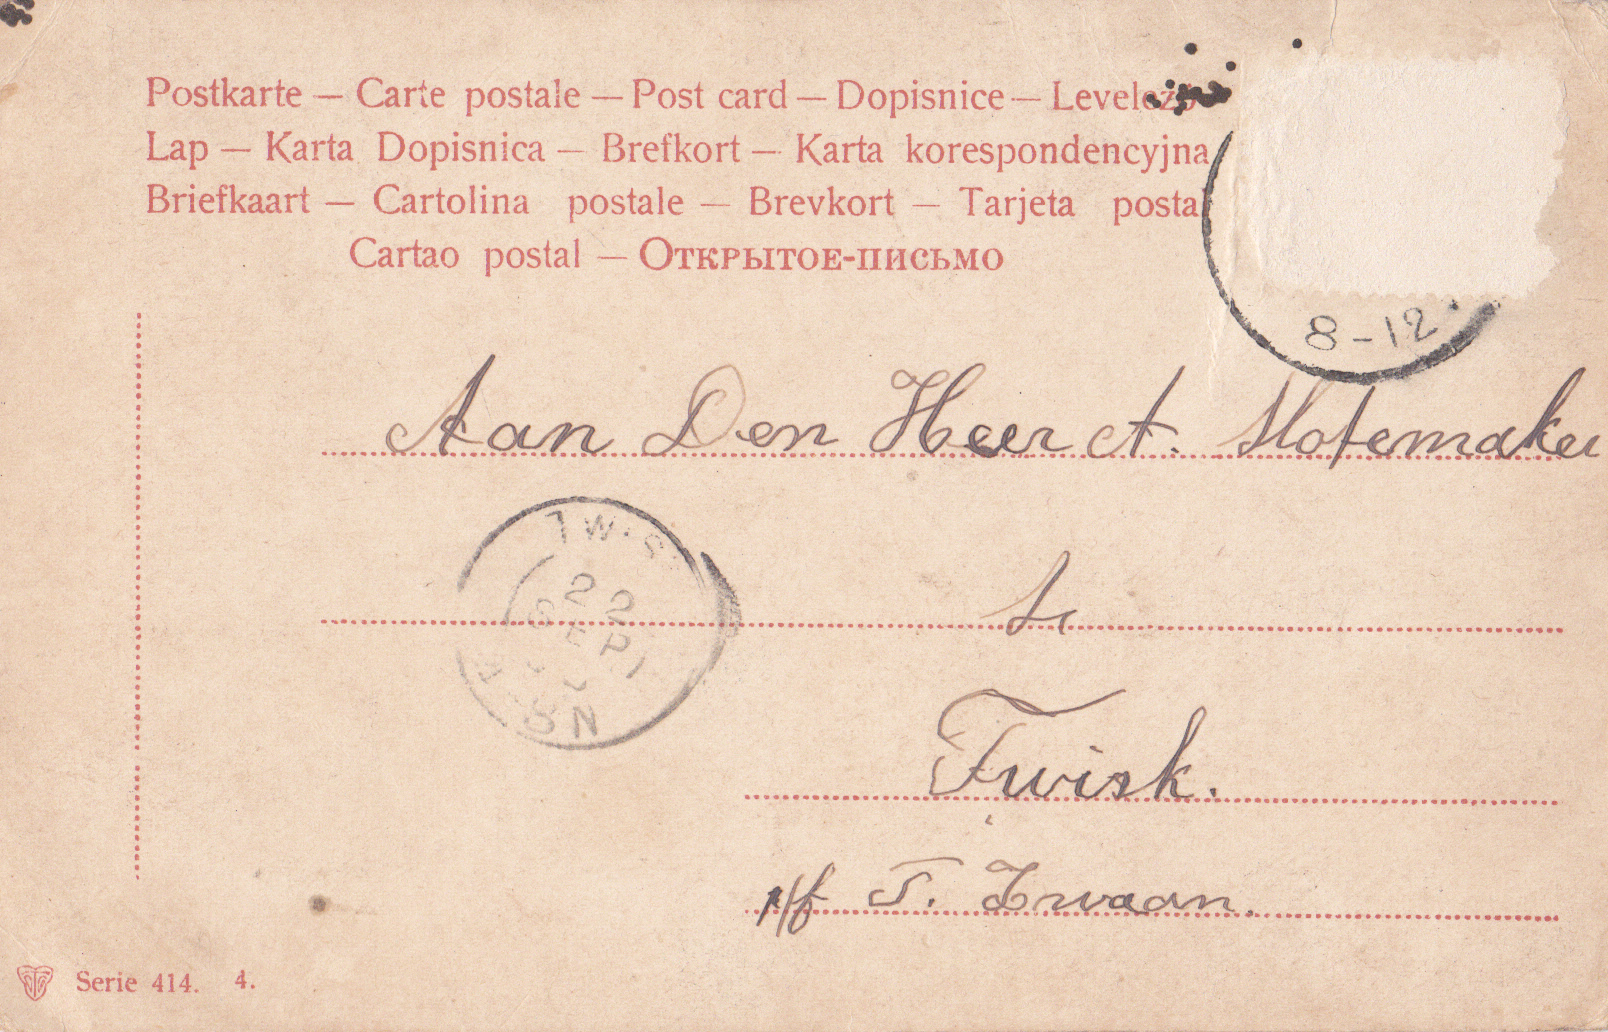 Postkarte — Carte postale — Post card — Dopisnice — Levelező
Lap — Karta Dopisnica — Brefkort — Karta korespondencyjna
Briefkaart — Cartolina postale — Brevkort — Tarjeta postal
Cartao postal — Открытое-письмо
8-12
Aan Den Heer A. Slotemaker
TWIS
22
SEP
te
Twisk.
p/f T. Zwaan.
Serie 414. 4.